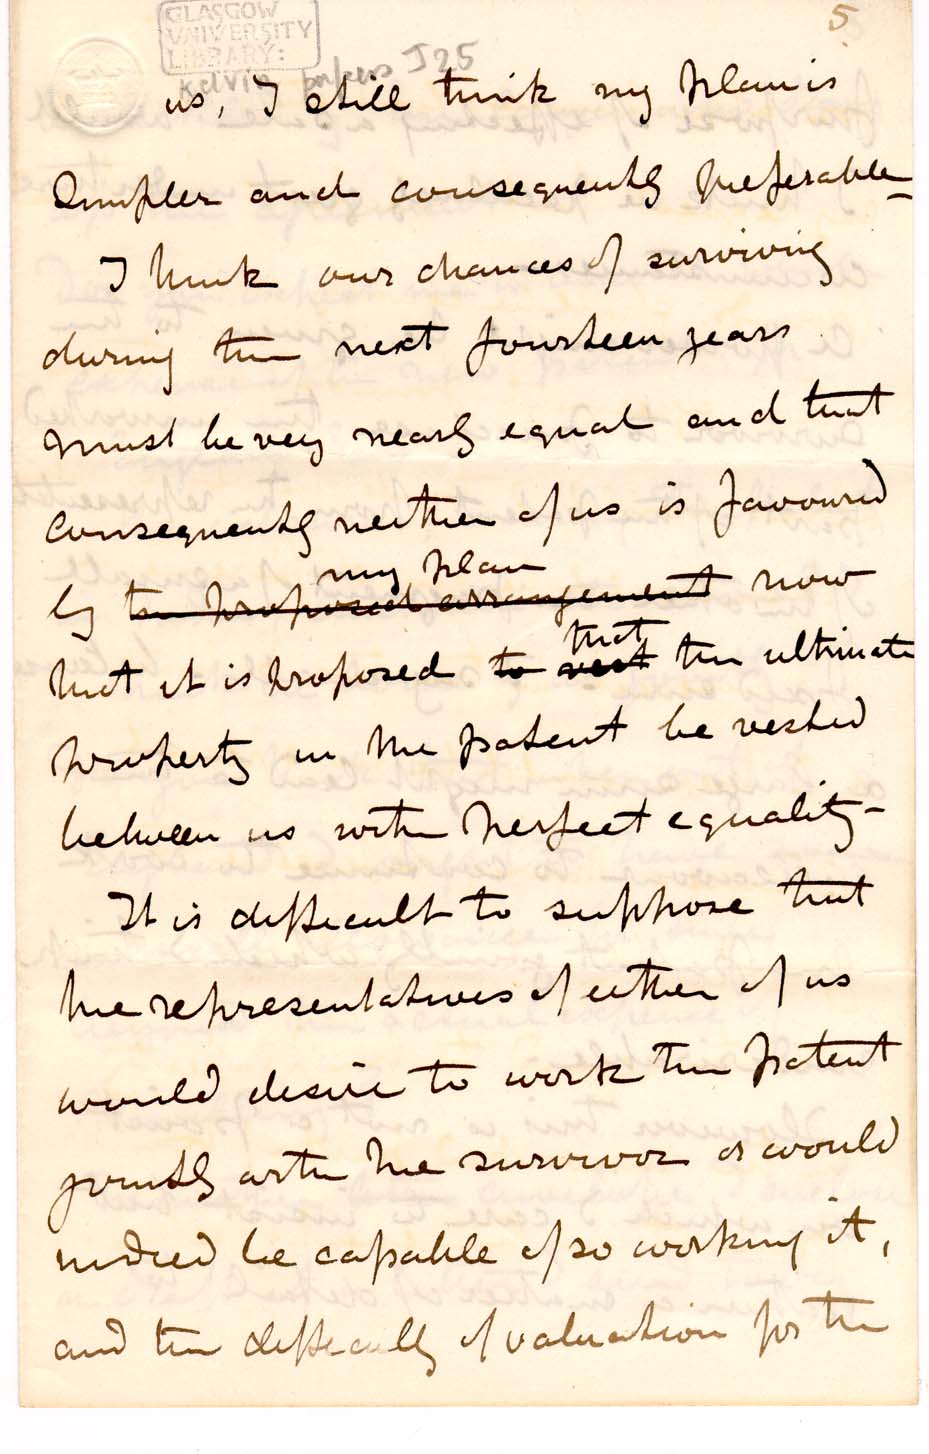 5
GLASGOW
UNIVERSITY
LIBRARY:
Kelvin papers J25
us, I still think my plan is
simpler and consequently preferable
I think our chances of surviving
during the next fourteen years
must be very nearly equal and that
consequently neither of us is favoured
my plan
by the proposed arrangement now
that
that it is proposed to vest the ultimate
property in the patent be vested
between us with perfect equality-
It is difficult to suppose that
the representatives of either of us
would desire to work the patent
jointly with the survivor or would
indeed be capable of so working it,
and the difficulty of valuation for the